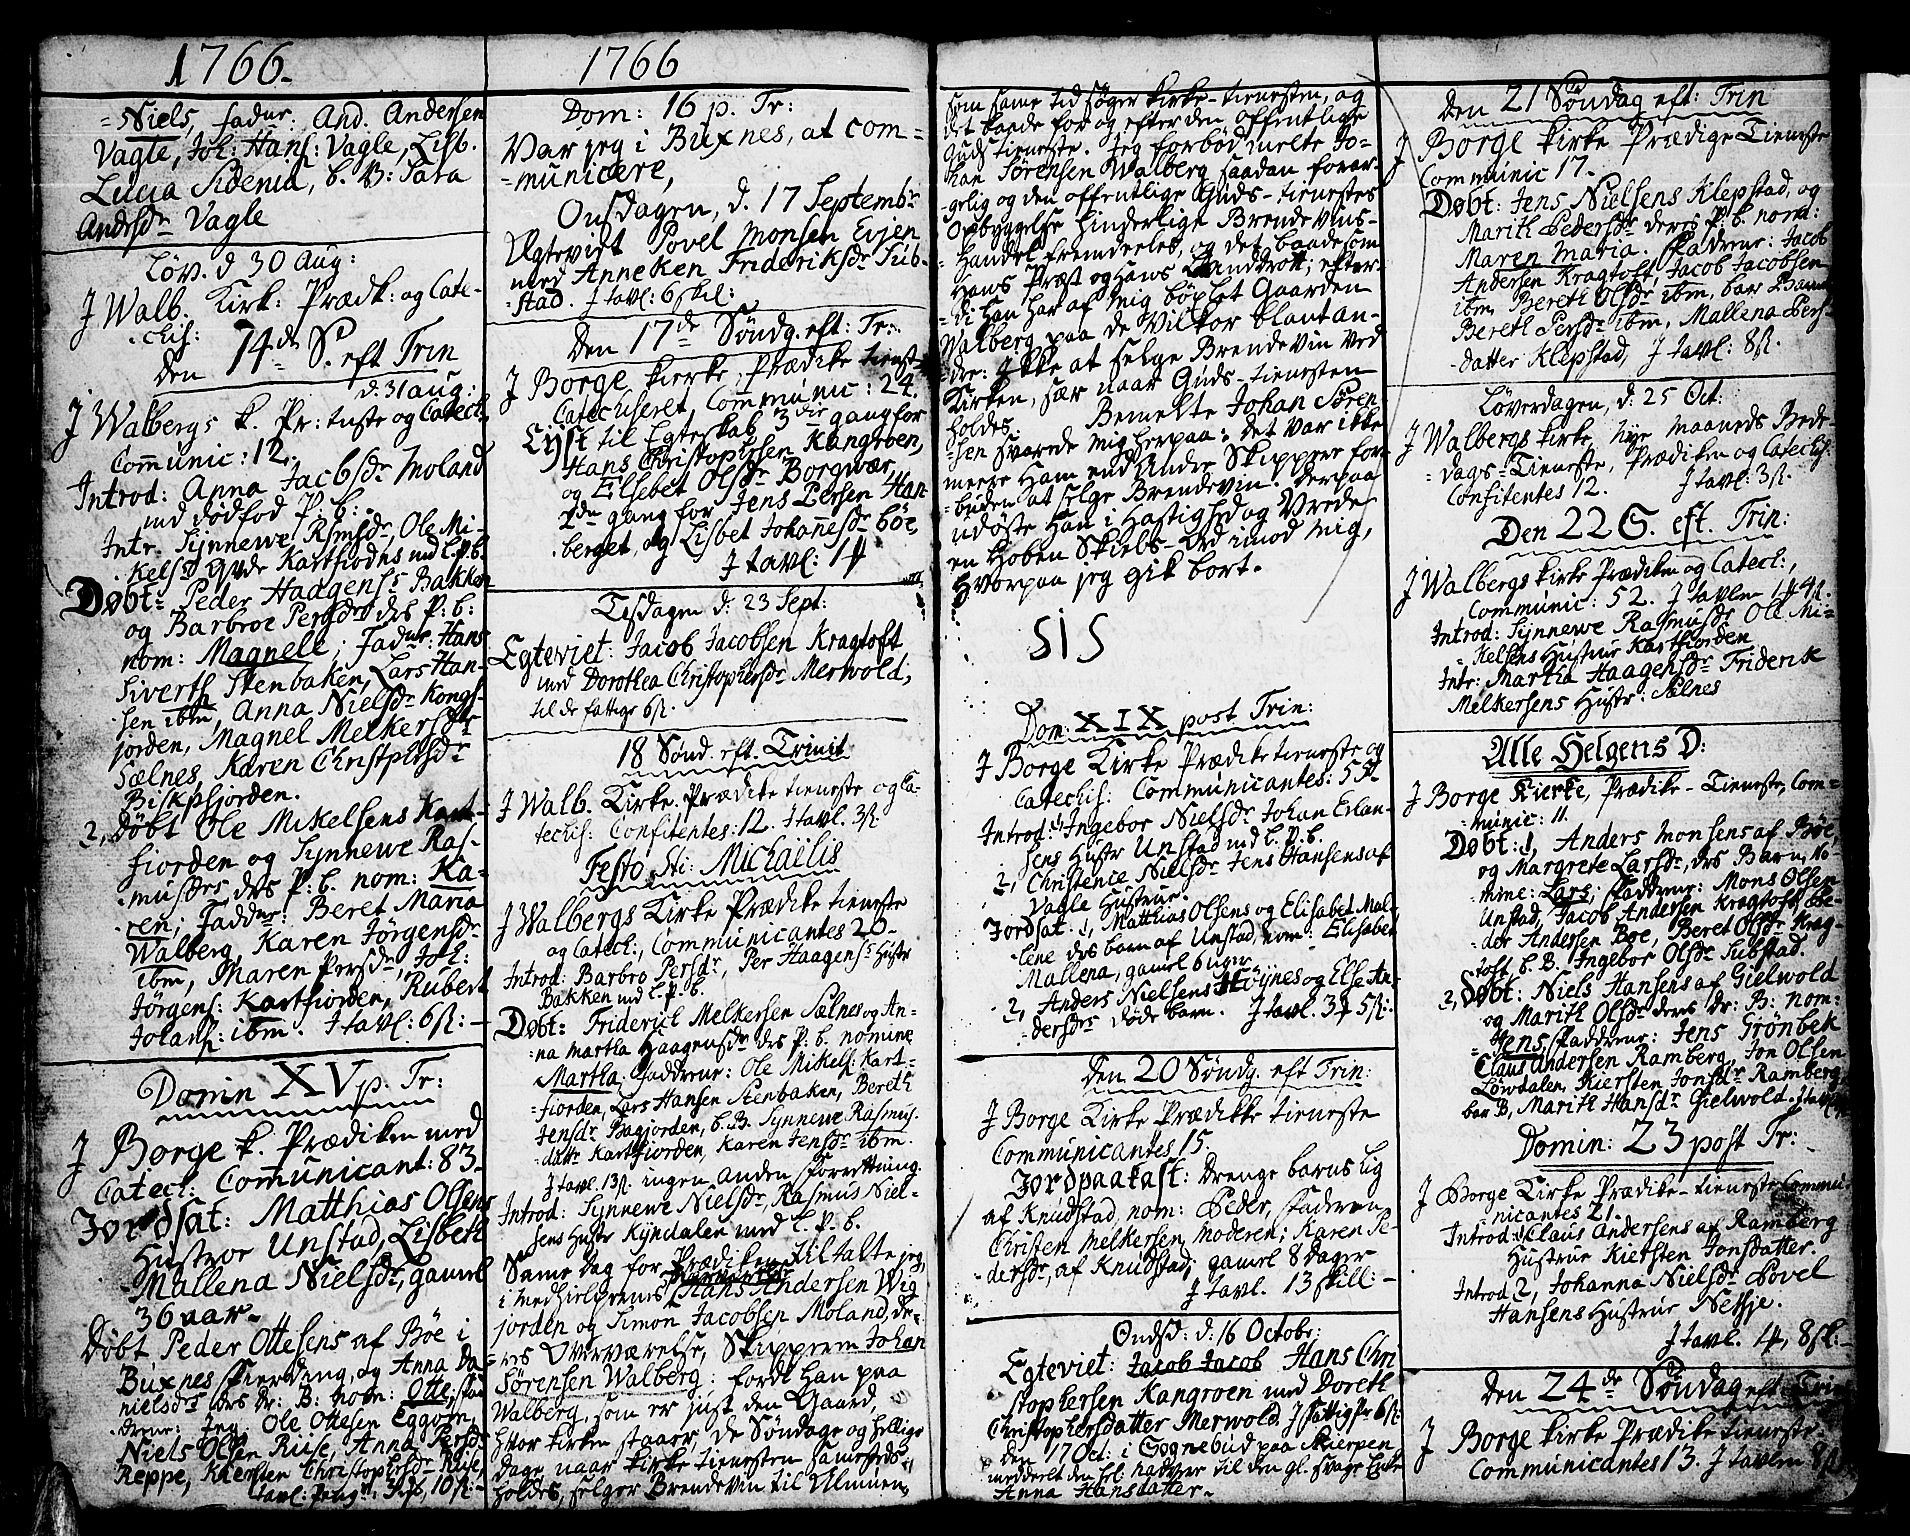 1766.
=Niels, fadur: And. Andersen
Vagle, Joh: Hans: Vagle, Lisb.
Lucia Sidenia, b. B: Sara
Andsdr Vagle
Løv. d 30 Aug:
J Walb. Kirk: Prædk: og Cate-
chis:
Den 14de S. eft Trin
d. 31 aug:
J Walbergs k. Pr: tnste og Catech.
Communic: 12.
Introd: Anna Jacobsdr Moland
md dødfød P: b:
Intr. Synnewe Rasmdr, Ole Mi-
kelsøns Kartfiordns md l. p. b.
Døbt: Peder Haagenss Bakken
og Barbroe Persdrs des P: b:
nom: Magnell; Fadur: Hans
Siverth Stenbaken, Lars Han-
sen ibm, Anna Nielsdr Kongs-
jorden, Magnel Melkersdr
Sælnes, Karen Christphsdr
Biskpfjorden.
2, Døbt Ole Mikelsens Kart-
fiorden og Synnewe Ras-
musdrs drs P. b. nom: Ka-
ren; Faddur: Beret Maria
Walberg, Karen Jørgensdr
ibm, Maren Persdr, Joh:
Jørgens: Kartfiorden, Rubert
Johans: ibm. J tavl: 6ß:-
Domin XV p. Tr:
J Borge k. Prædiken med
Catech: Communicant: 83.
Jordsat: Matthias Olsens
Hustroe Unstad, Lisbeth
Mallena Nielsdr, gamel
36 aar-
Døbt, Peder Ottesens af Bøe i
Buxnes fierding, og Anna Da-
nielsdrs drs Dr: B: nom: Otte; fad-
drene: Jeg, Ole Ottesen Eggum,
Niels Olsen Ruse, Anna Persdr
Reppe, Kiersten Christophersdr Ruse,
1766
Dom: 16 p. Tr:
Var jeg i Buxnes, at com=
-municere,
Onsdagen, d. 17 Septembr
Egtevidt Povel Monsen Evjen
med Anneken Frideriksdr Sub-
stad. J tavl: 6 skil:
Den 17de Søndg. eft: Tr:
J Borge kierke, Prædike tienst-
Catechiseret, Communic: 24.
Lyst til Egteskab 3die gang for
Hans Christophersen Kangroen,
og Elsebet Olsdr Borgwær,
2den gang for Jens Persen Han-
berget, og Lisbet Johannesdr bøe
J tavl: 1
Tisdagen d: 23 Sept:
Egteviet: Jacob Jacobsen Kragtoft
med Dorothea Christophersdr Merwold;
til de fattige 6ß.
18 Sønd. eft Trinit
J Walb. Kirke Prædike tieneste og Ca-
techis: Confitentes: 12. J tavl. 3ß
Festo Sti: Michaelis
J Walbergs Kirke Prædike tieneste
og Catech:, Communicantes 20-
Introd: Barbro Persdr, Per Haagenss Hustr
Bakken md l. p. b.
Døbt: Friderich Melkersen Sælnes og An-
na Martha Haagensdr drs P. b. nomine
Martha. Fadderne: Ole Mikels: Kart-
fiorden, Lars Hansen Stenbaken, Bereth
Jensdr Bagjorden, b. B. Synnewe Rasmus-
datter Kartfiorden, Karen Jensdr ibm.
J tavl. 13ß. ingen Anden Forretning.
Introd: Synnewe Nielsdr, Rasmus Niel-
sens Hustr Kyndalen med l. p. b.
Same dag for Prædiken tiltalte jeg,
i medhielperens Hans Andersen Wig
jorden og Simon Jacobsen Moland, de-
res Overværelse, Skipperen Johan
Sørensen Walberg: fordi han paa
Walberg, som er just den Gaard,
hvor kirken staar, de Søndage og hellige
dage naar kirke tienesten sammesteds
holdes, selger Brendevin til Almuen,
som same tid søger kirke-tienesten, og
det baade for og efter den offentlige
Guds tieneste. Jeg forbød melte Jo-
han Sørensen Walberg saadan forar-
gelig og den offentlige Guds-tienestes
Opbyggelse hinderlige Brendevins-
Handel fremdeeles, og det baade som
Hans Præst og Hans Landdrott; efter-
di han har af mig bøxlet Gaarden
Walberg paa de Vilkor blant an-
dre: Ikke at selge Brendevin ved
Kirken, sær naar Guds-tienesten
holdes. Bemelte Johan Søren
sen svarede mig herpaa: det var ikke
mere Ham end Andre Skippere for-
buden at selge Brendevin. Derpaa
udøste Han i Hastighed og Vrede
en Hoben Skiels-Ord imod mig,
hvorpaa jeg gik bort.
SiS
Dom: XIX post Trin:
J Borge Kirke Prædiketieneste og
Catechis: Communicantes: 5
Introd: 1, Ingebor Nielsdr Johan Erlan-
sens Hustr Unstad md l. p. b.
2, Christence Nielsdr Jens Hansens af
Vagle Hustrue.
Jordsat: 1, Matthias Olsens og Elisabet Mal-
lene drs barn af Unstad, nom: Elisabet
Mallena, gamel 6 uger.
2, Anders Nielsens Høynes og Else An-
dersdrs døde barn. J tavl. 3 5ß.
Den 20 Søndg. eft Trin:
J Borge Kirke Prædikke tieneste
Communicantes 15.
Jordpaakast: Drenge barns lig
af Knudstad, nom: Peder, faderen
Christen Melkersen, Moderen; Karen Pe-
dersdr, af Knudstad; gamel 8 dager
J tavl. 13 skill:-
Ondsd: d: 16 Octobr:
Egteviet: Jacob Jacob Hans Chri
stophersen Kangroen med Doreth
Christophersdatter Merwold. J fattig pr 6ß:
Den 17 Oct: i Sognebud paa Skierpen
meddeelt den hl. nadver til den gl. svage Enke
Anna Hansdatter.-
Den 21 Søndag eft: Trin
J Borge kirke Prædige Tieneste
Communic 17.
Døbt: Jens Nielsens Klepstad, og
Marith Pedersdr ders P. b. nom:
Maren Maria. Fadderne: Jacob
Andersen Kragtoft, Jacob Jacobsen
ibm, Bereth Olsdr ibm, bar Barnet
Bereth Persdr ibm, Mallena Pers-
datter Klepstad, J tavl: 8ß.
Løverdagen, d: 25 Oct:
J Walbergs kirke, hye maaneds Bede-
dags-Tieneste, Prædiken og Catechis:
Confitentes 12. J tavl: 3ß.
Den 22 S. eft. Trin:
J Walbergs kirke Prædiken og Catech:,
Communic: 52. J tavlen 14ß.
Introd: Synnewe Rasmusdr Ole Mi-
kelsens Hustrue Kartfiorden
Intr: Martha Haagensdr Friderik
Melkersens Hustr: Sælnes
Alle Helgens D:
J Borge Kierke, Prædike-Tieneste, Com=
munic: 11.
Døbt: 1, Anders Monsens af Bøe,
og Margrete Larsdr, drs Barn, No-
mine: Lars; Fadderne: Mons Olsen
Unstad, Jacob Andersen Kragtoft, Pe-
der Andersen Boe, Beret Olsdr Krag-
toft, b. B. Ingebor Olsdr Substad.
2, Døbt: Niels Hansens af Gielwold
og Marith Olsdr ders Dr: B: nom:
Jens, Fadderne: Jens Grønbek
Claus Andersen Ramberg, Jon Olsen
Løwdalen, Kiersten Jonsdr Ramberg,
bar B, Marith Hansdr Gielwold.
Domin: 23 post Tr:
J Borge Kirke Prædike-tieneste Commu-
nicantes 21.
Introd: 1, Claus Andersens af Ramberg
Hustrue Kiersten Jonsdatter.
Introd 2, Johanna Nielsdr Povel
Hansens Hustrue Netsje.
J tavl. 1, 8ß:-
Den 24de Søndag eft Trin
J Borge kirke Prædike tieneste-
Communicantes 13. J tavlen 8ß